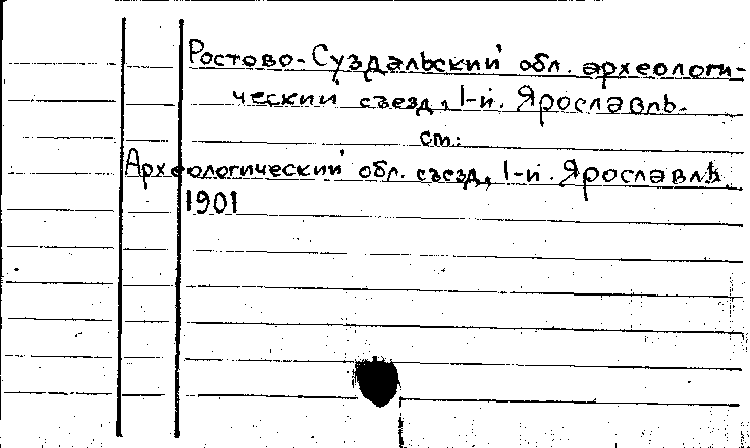 Ростово-Суздальский обл. археологи-
ческий съезд, 1-й. Ярославль.
см:
Археологический обл. съезд, 1-й. Ярославль.
1901